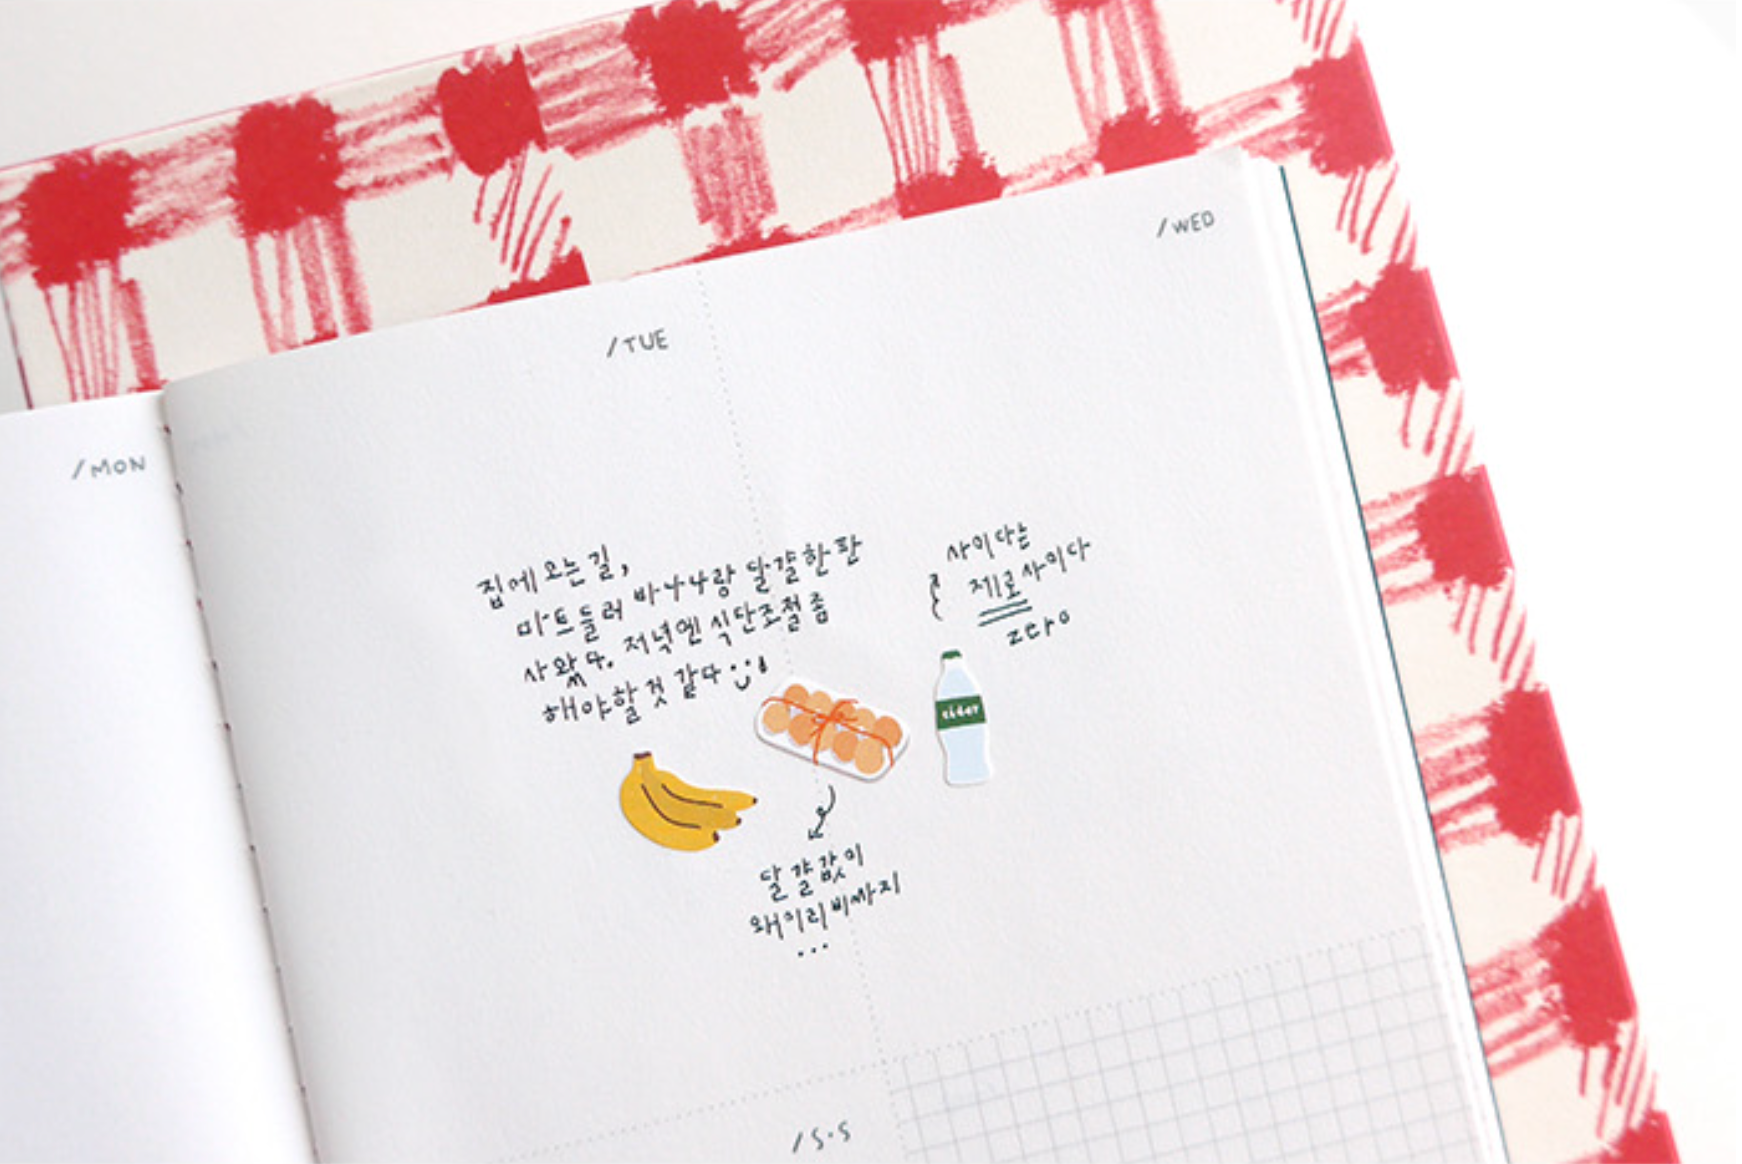 /MON
/TUE
/WED
집에 오는 길,
마트 들러 바나나랑 달걀 한 판
사왔다. 저녁엔 식단조절 좀
해야할 것 같다
사이다는
제로사이다
zero
cider
달걀값이
왜이리 비싸지
...
/S·S